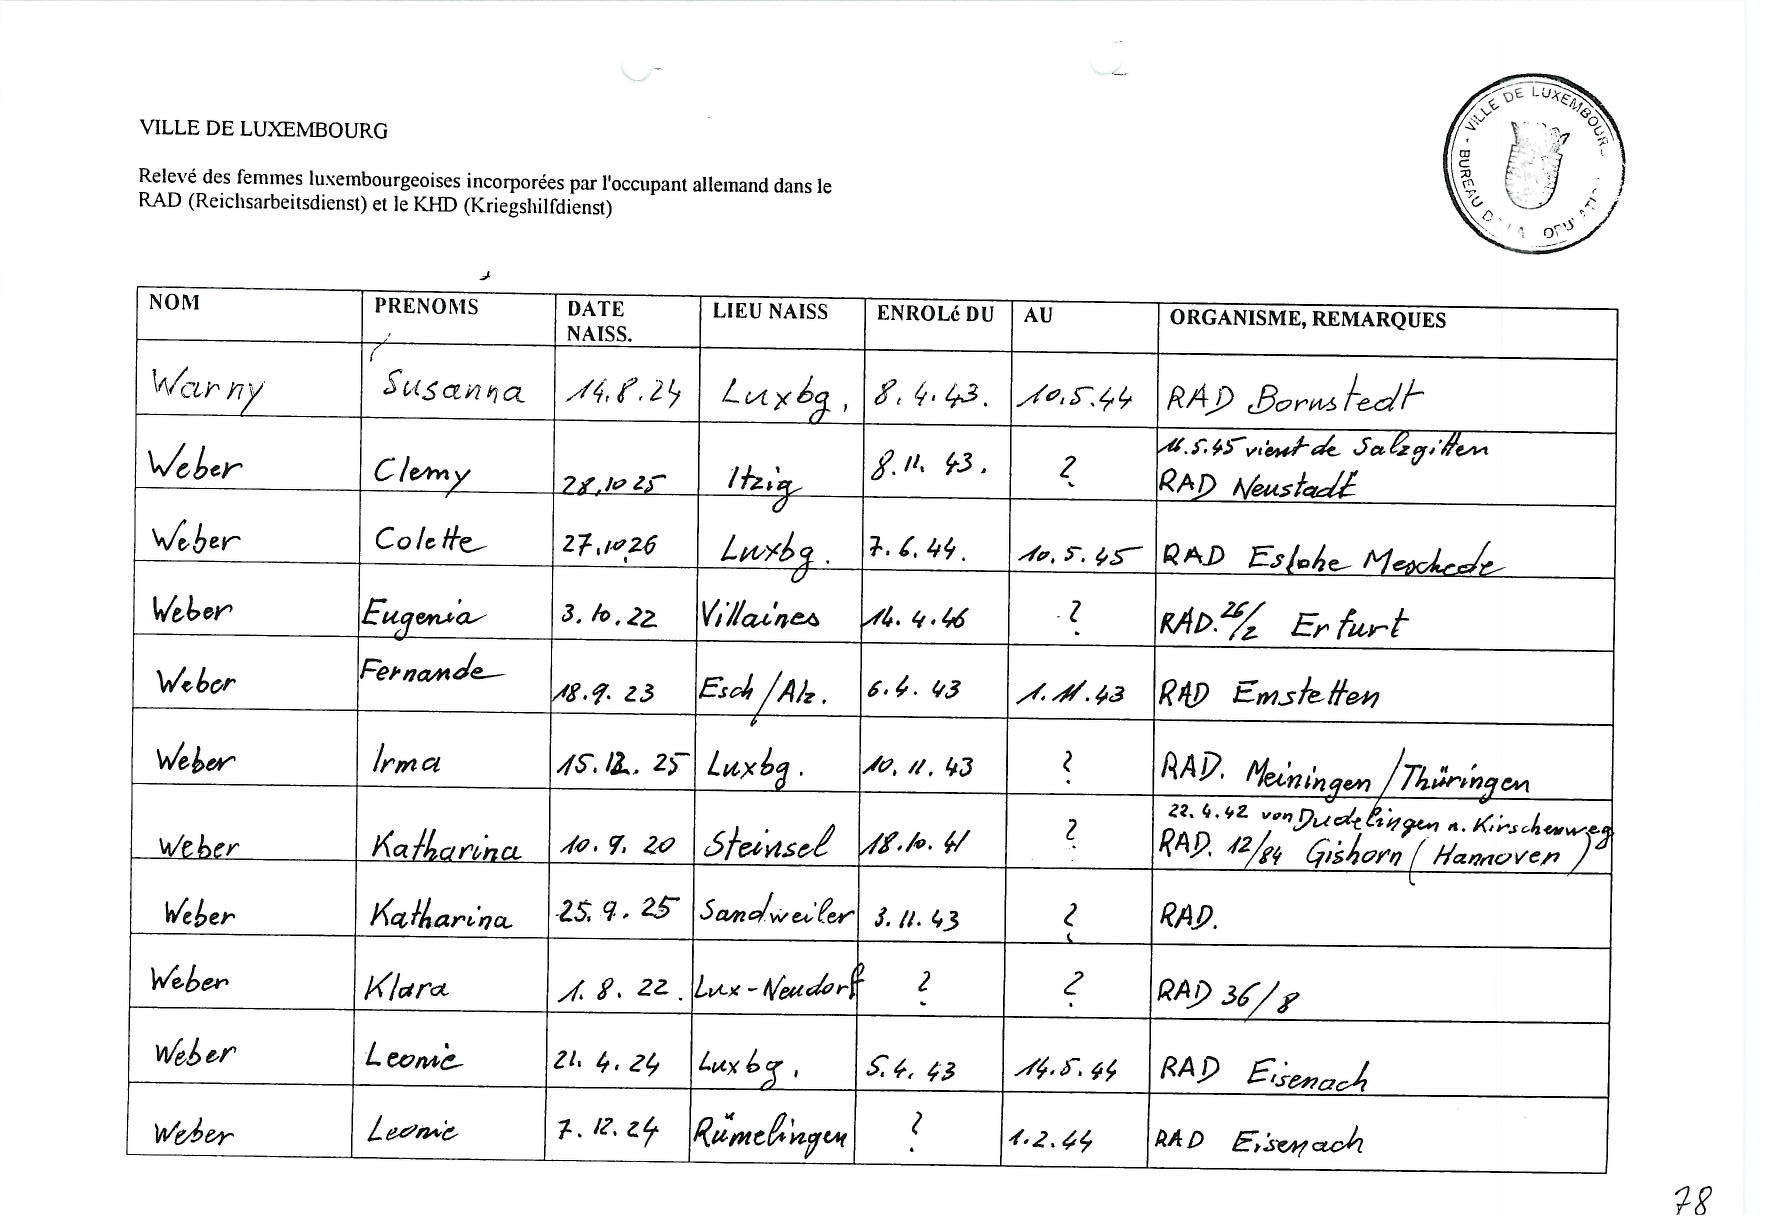 VILLE DE LUXEMBOURG
Relevé des femmes luxembourgeoises incorporées par l'occupant allemand dans le
RAD (Reichsarbeitsdienst) et le KHD (Kriegshilfdienst)
VILLE DE LUXEMBOUR
BUREAU
NOM PRENOMS DATE NAISS. LIEU NAISS ENROLé DU AU ORGANISME, REMARQUES
Warny Susanna 14.8.24 Luxbg. 8.4.43. 10.5.44 RAD Bornstedt
Weber Clemy 28.10 25 Itzig 8.11. 43. ? 16.5.45 vient de Salzgitten
RAD Neustadt
Weber Colette 27.10.26 Luxbg. 7.6.44. 10.5.45 RAD Eslohe Meschede
Weber Eugenia 3.10.22 Villaines 14.4.46 ? RAD. 26/2 Erfurt
Weber Fernande 18.9.23 Esch/Alz. 6.4.43 1.11.43 RAD Emstetten
Weber Irma 15.12.25 Luxbg. 10.11.43 ? RAD. Meiningen/Thüringen
Weber Katharina 10.9.20 Steinsel 18.10.41 ? 22.4.42 von Dudelingen n. Kirschenweg
RAD. 12/84 Gishorn (Hannoven)
Weber Katharina 25.9.25 Sandweiler 3.11.43 ? RAD.
Weber Klara 1.8.22. Lux-Neudorf ? ? RAD 36/8
Weber Leonie 21.4.24 Luxbg. 5.4.43 14.5.44 RAD Eisenach
Weber Leonie 7.12.24 Rümelingen ? 1.2.44 RAD Eisenach
78